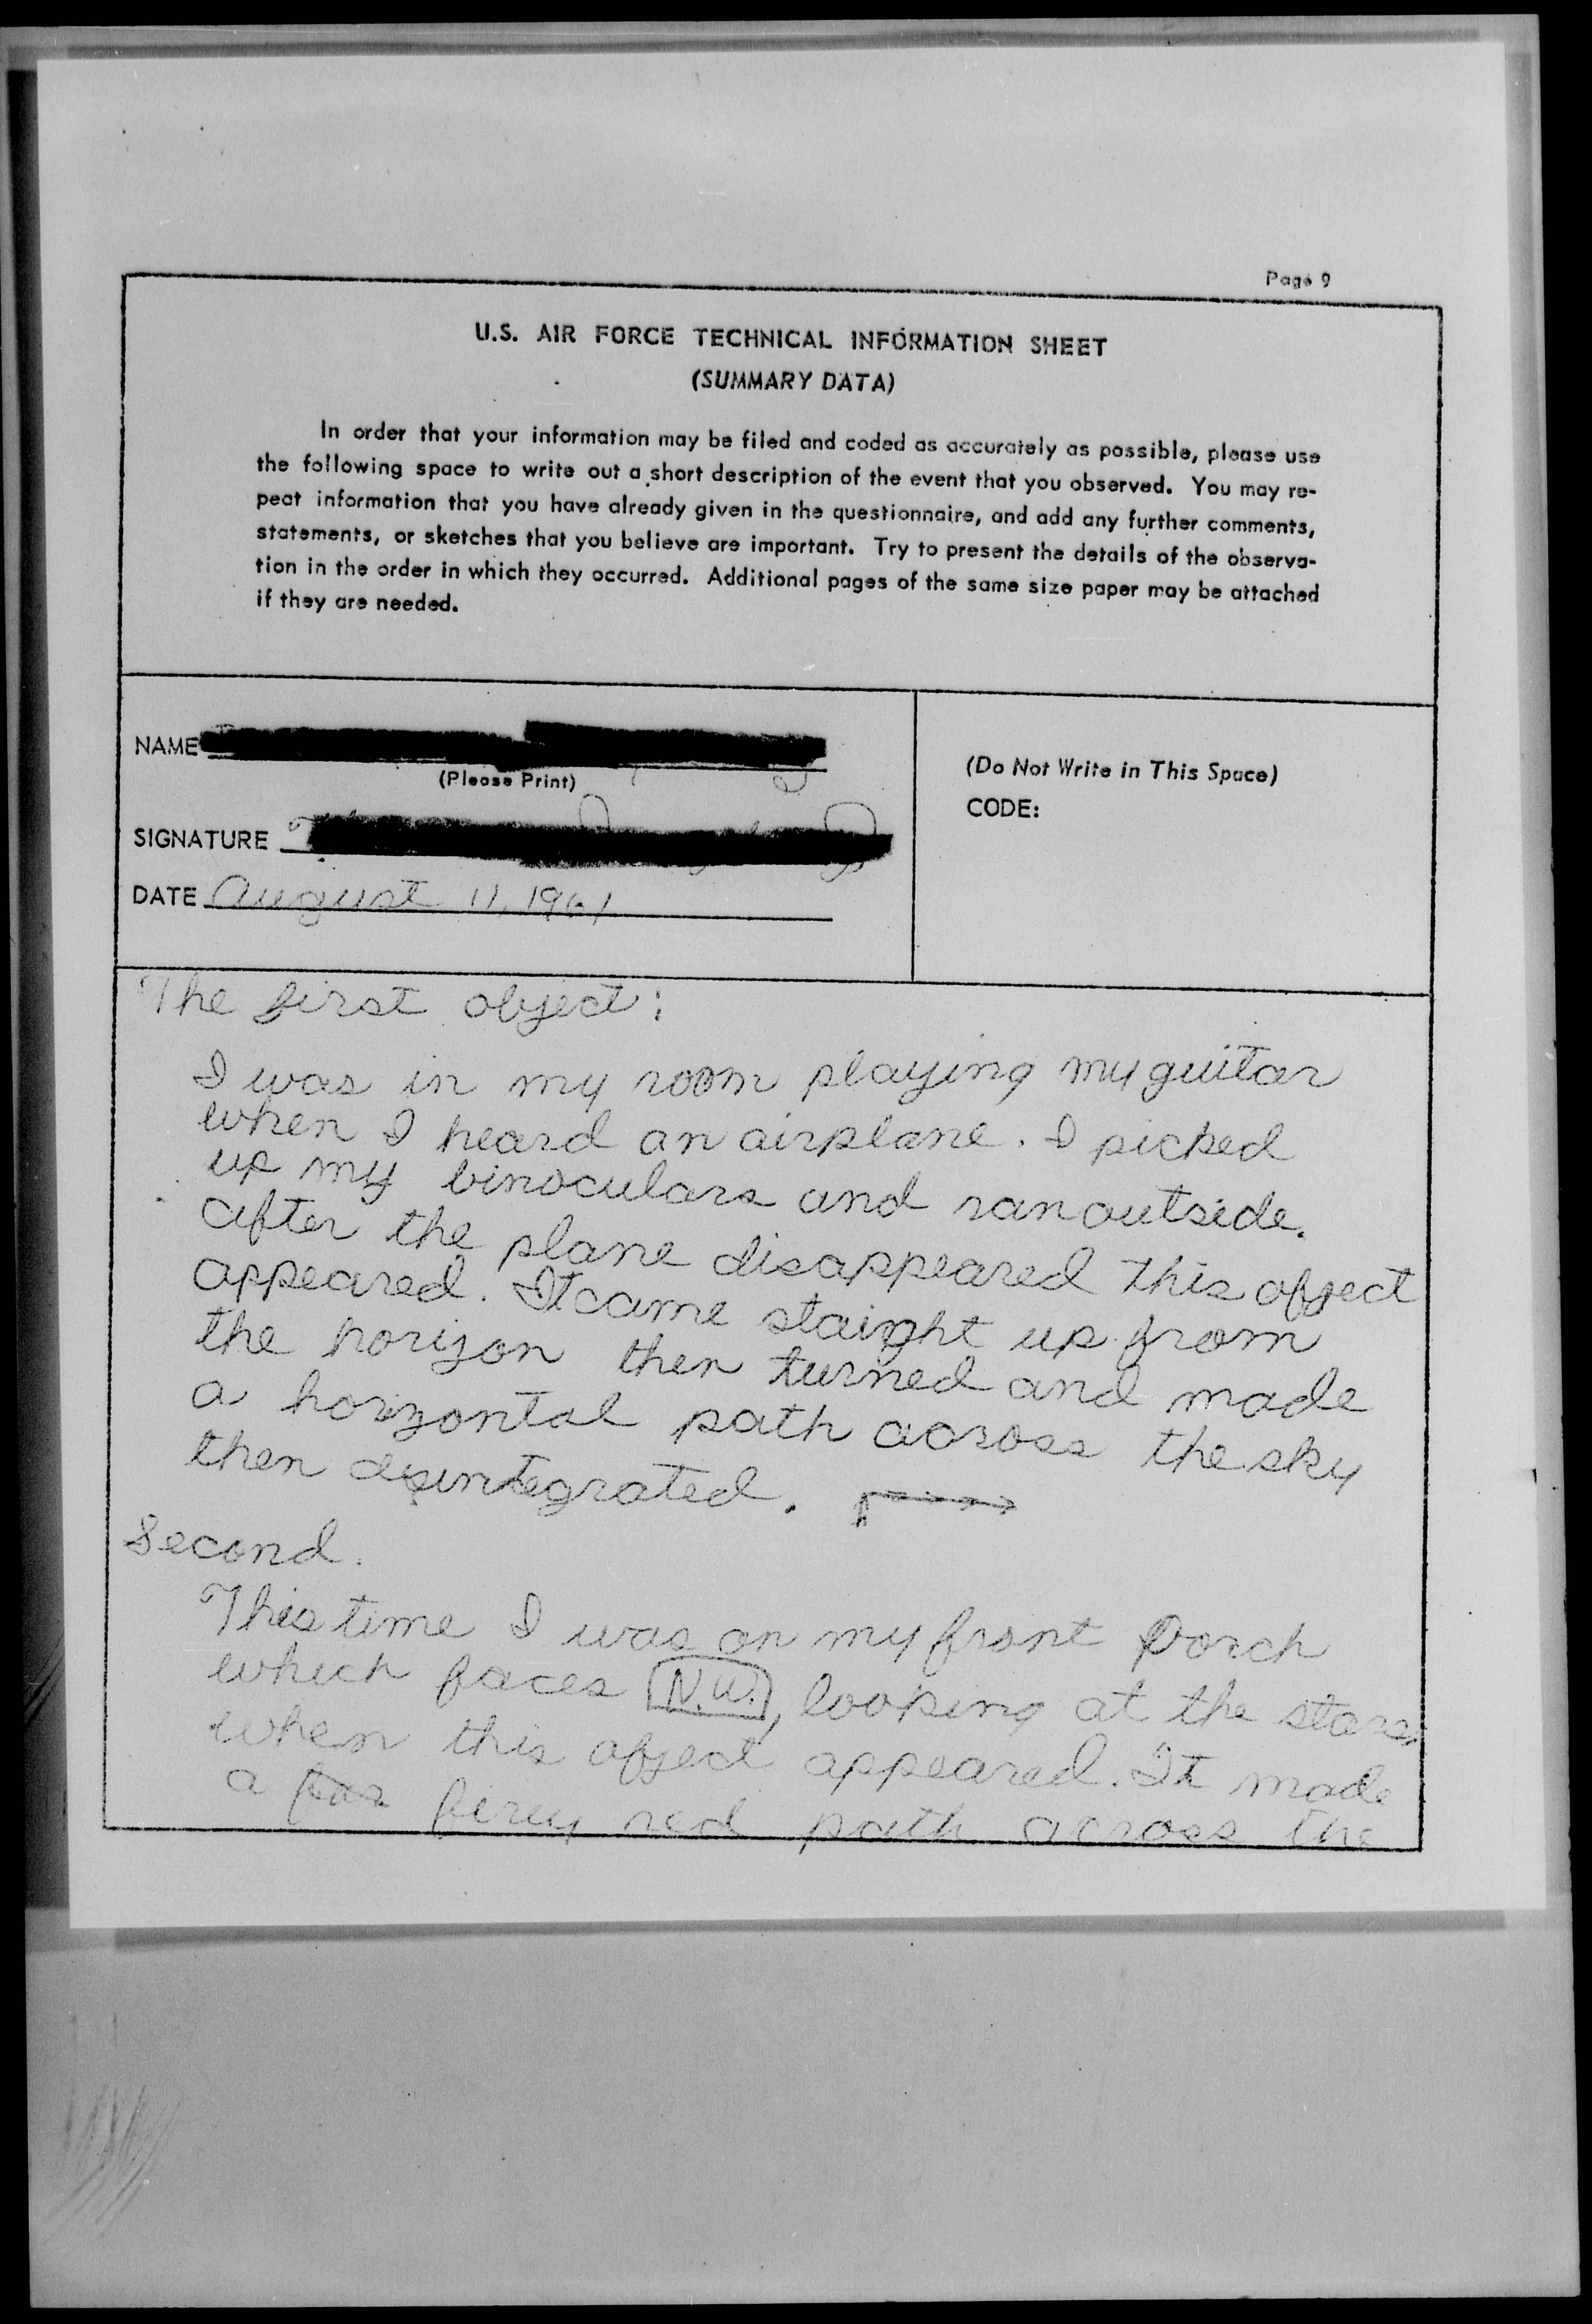 Page 9
U.S. AIR FORCE TECHNICAL INFORMATION SHEET
(SUMMARY DATA)
In order that your information may be filed and coded as accurately as possible, please use
the following space to write out a short description of the event that you observed. You may re-
peat information that you have already given in the questionnaire, and add any further comments,
statements, or sketches that you believe are important. Try to present the details of the observa-
tion in the order in which they occurred. Additional pages of the same size paper may be attached
if they are needed.
NAME
(Please Print)
SIGNATURE
DATE August 11, 1961
(Do Not Write in This Space)
CODE:
The first object:
I was in my room playing my guitar
when I heard an airplane. I picked
up my binoculars and ran outside.
after the plane disappeared this object
appeared. It came staight up from
the horizon then turned and made
a horizontal path across the sky
then disintegrated.
Second.
This time I was on my front Porch
which faces N.W., looking at the stars,
when this object appeared. It made
a firey red path across the